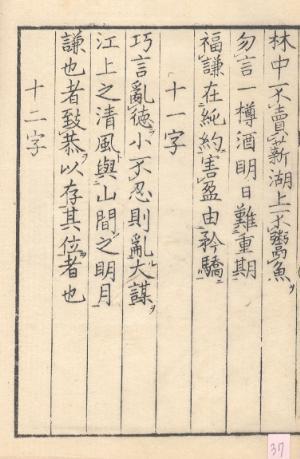 林中不賣薪湖上不鬻魚
勿言一樽酒明日難重期
福謙在純約害盈由矜驕
十一字
巧言亂徳小不忍則亂大謀
江上之清風與山間之明月
謙也者致恭以存其位者也
十二字
37